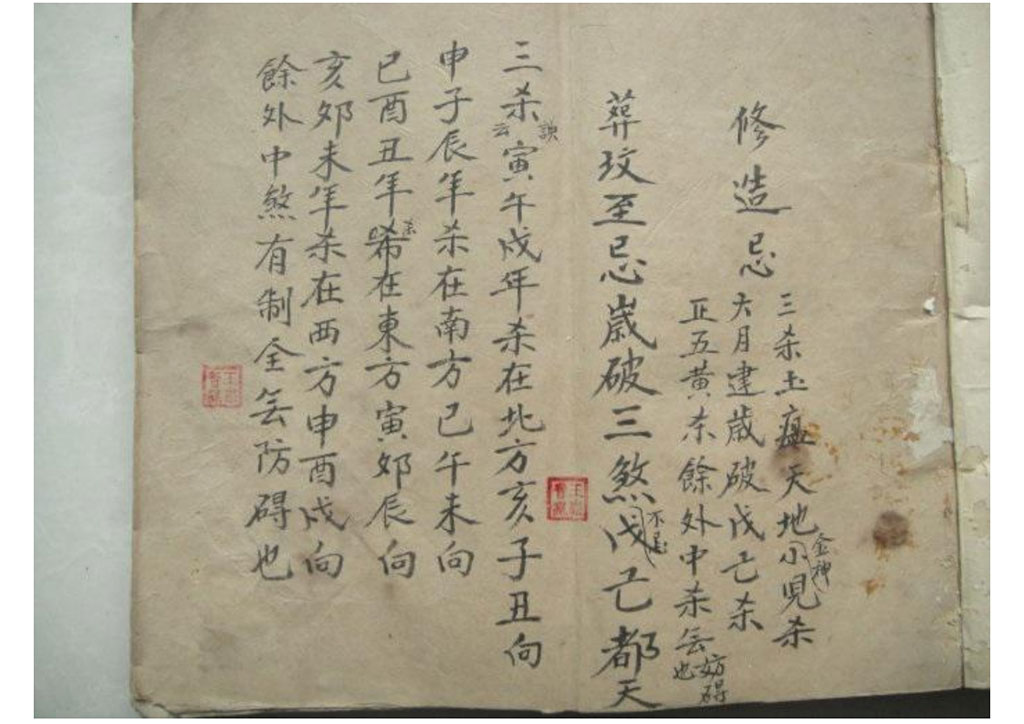 修造忌
三杀土瘟天地金神小児杀
大月建歲破戊亡杀
正五黃杀餘外中杀妨碍也
葬坟至忌歲破三煞戊亡都天
不忌
三杀訣云寅午戌年杀在北方亥子丑向
申子辰年杀在南方巳午未向
巳酉丑年杀在東方寅卯辰向
亥卯未年杀在西方申酉戌向
餘外中煞有制全無防碍也